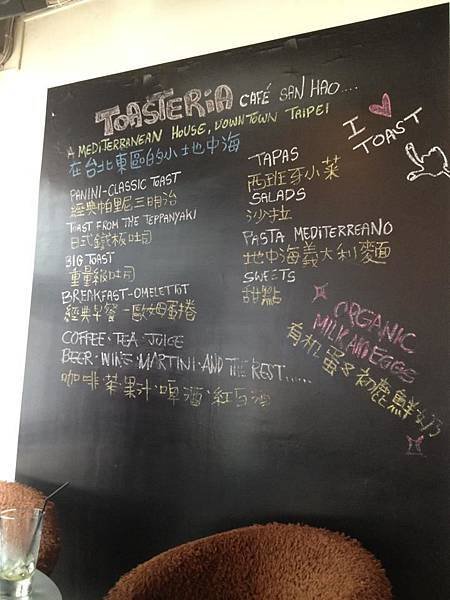 TOASTERIA CAFÉ SAN HAO....
A MEDITERRANEAN HOUSE, DOWNTOWN TAIPEI
在台北東區的小地中海
PANINI-CLASSIC TOAST
經典帕里尼三明治
TOAST FROM THE TEPPANYAKI
日式鐵板吐司
BIG TOAST
重量級吐司
BREAKFAST-OMELETTOT
經典早餐-歐姆蛋捲
COFFEE·TEA·JUICE
BEER·WINE·MARTINI·AND THE REST......
咖啡茶果汁·啤酒·紅白酒
TAPAS
西班牙小菜
SALADS
沙拉
PASTA MEDITERREANO
地中海義大利麵
SWEETS
甜點
I
TOAST
ORGANIC
MILK AND EGGS
有机蛋&初鹿鮮奶